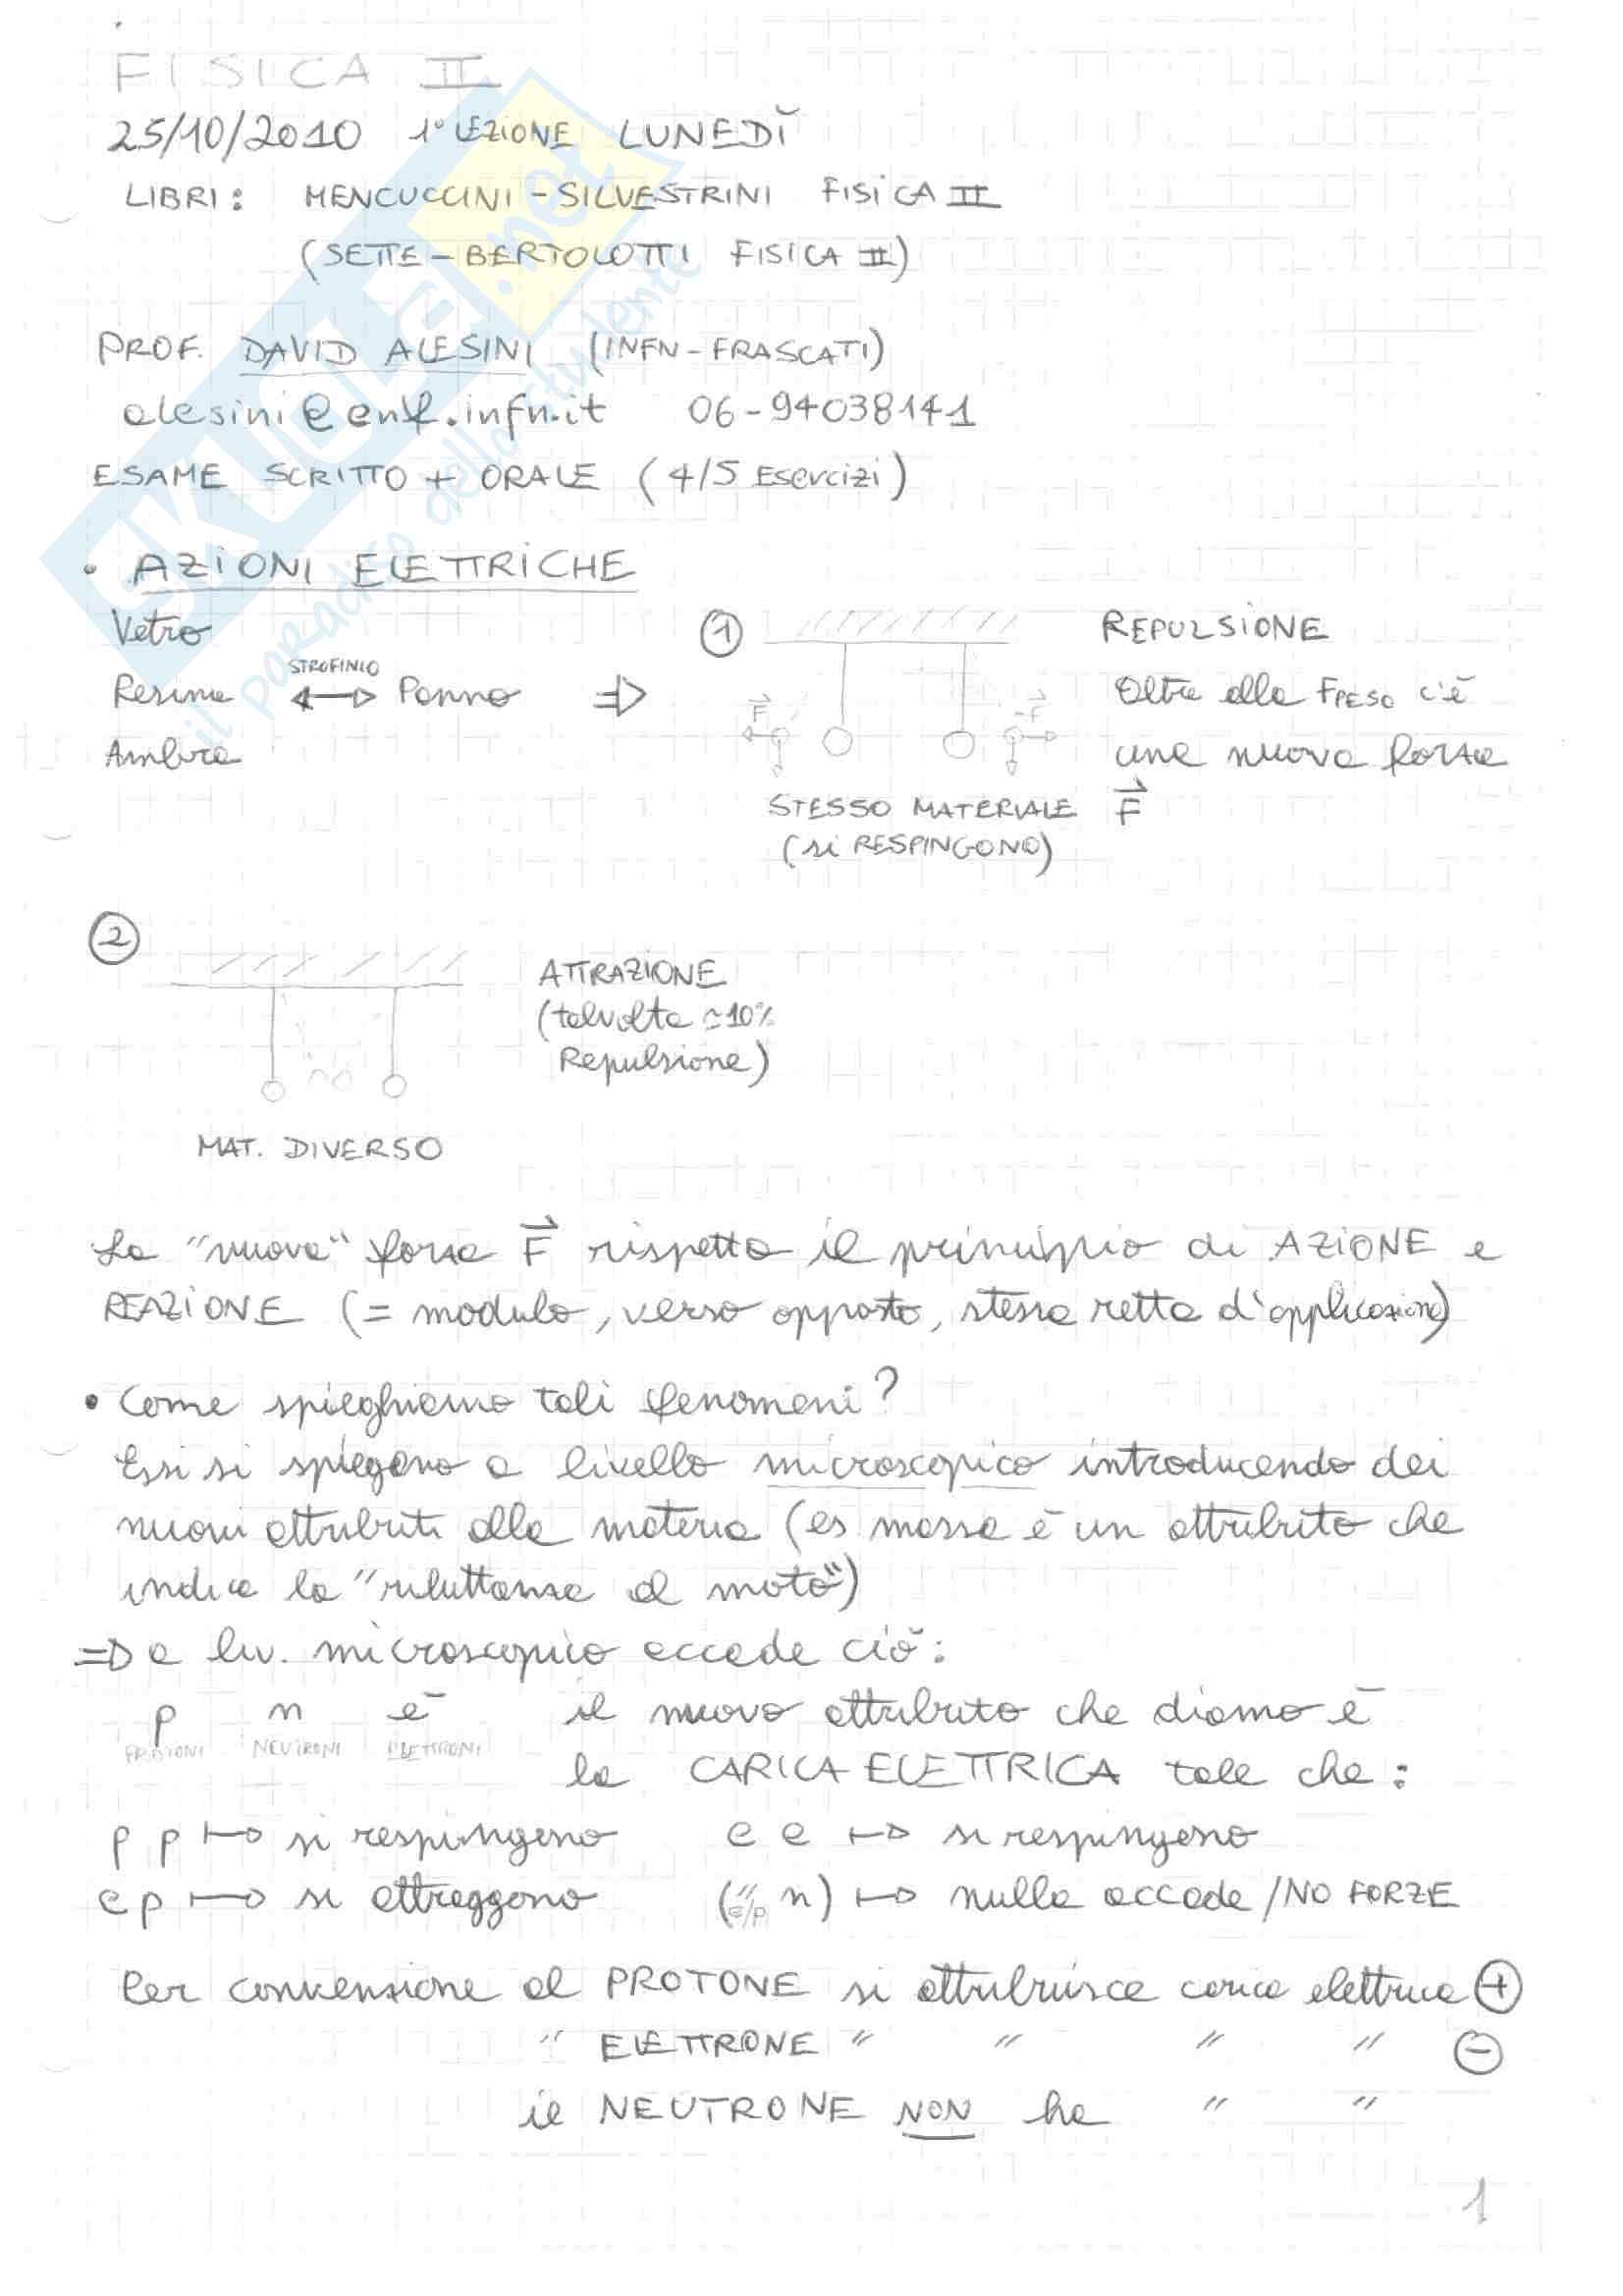 FISICA II
25/10/2010 1° LEZIONE LUNEDĬ
LIBRI: MENCUCCINI-SILVESTRINI FISICA II
(SETTE-BERTOLOTTI FISICA II)
PROF. DAVID ALESINI (INFN-FRASCATI)
06-94038141
ESAME SCRITTO + ORALE (4/5 Esercizi)
SKUOLA.net
il paradiso dello studente
• AZIONI ELETTRICHE
Vetro
Resina ⟷ Panno ⇒
STROFINIO
Ambra
① REPULSIONE
Oltre alla FPESO c'è
una nuova forza
F⃗
F⃗ -F⃗
STESSO MATERIALE
(si RESPINGONO)
② ATTRAZIONE
(talvolta ≃10%
Repulsione)
MAT. DIVERSO
La "nuova" forza F⃗ rispetta il principio di AZIONE e
REAZIONE (= modulo, verso opposto, stessa retta d'applicazione)
• Come spieghiamo tali fenomeni?
Essi si spiegano a livello microscopico introducendo dei
nuovi attributi alla materia (es massa è un attributo che
indica la "riluttanza al moto")
⇒ a liv. microscopico accade ciò:
p n e⁻ il nuovo attributo che diamo è
PROTONI NEUTRONI ELETTRONI
la CARICA ELETTRICA tale che:
p p ↦ si respingono e e ↦ si respingono
e p ↦ si attraggono (e/p n) ↦ nulla accade/NO FORZE
Per convenzione al PROTONE si attribuisce carica elettrica ⊕
" ELETTRONE " " " " ⊖
il NEUTRONE NON ha " "
1